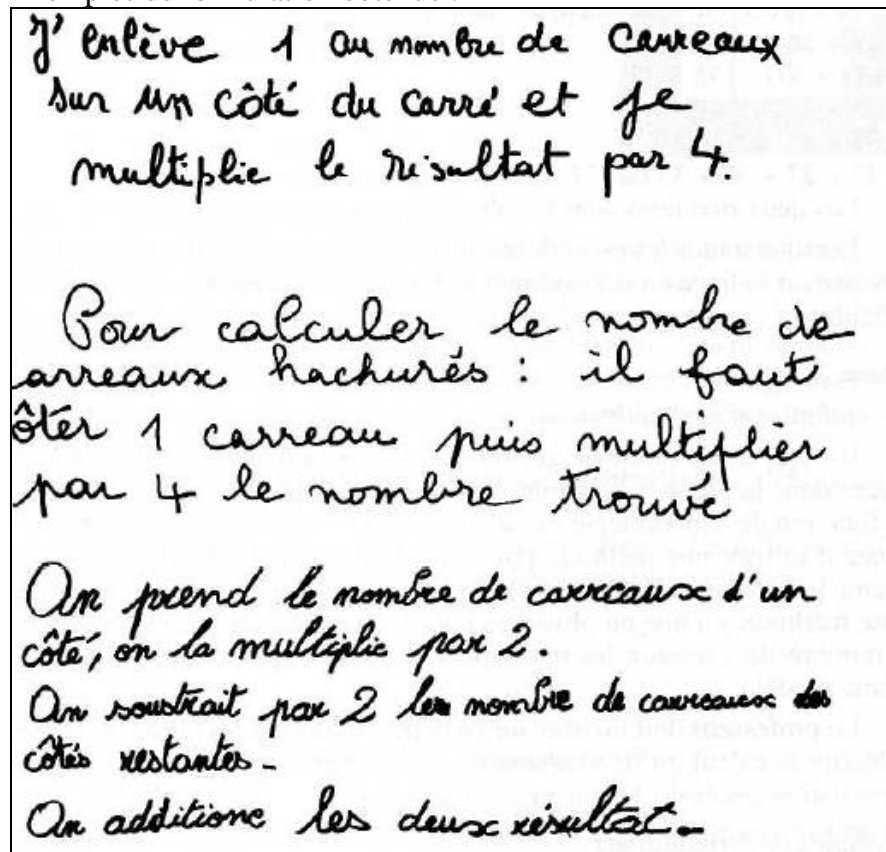 J' enlève 1 au nombre de carreaux
sur un côté du carré et je
multiplie le résultat par 4.
Pour calculer le nombre de
arreaux hachurés : il faut
ôter 1 carreau puis multiplier
par 4 le nombre trouvé
On prend le nombre de carreaux d'un
côté, on la multiplie par 2.
On soustrait par 2 les nombre de carreaux des
côtés restantes.
On additione les deux résultat.